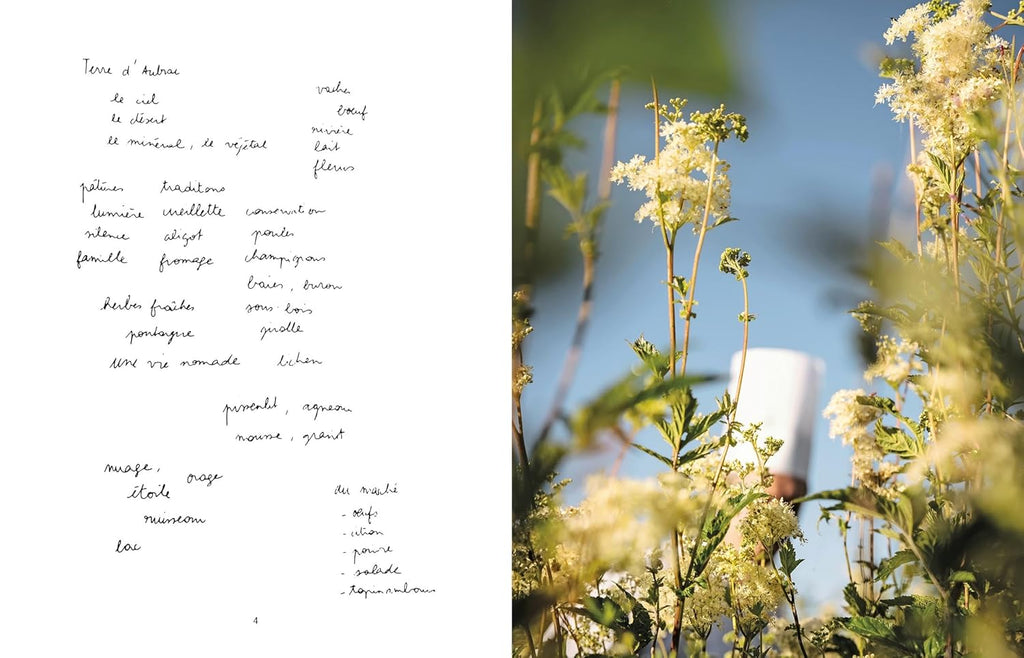 Terre d'Aubrac
le ciel
le désert
le minéral, le végétal
vaches
bœuf
rivière
lait
fleurs
pâtures traditons
lumière cueillette conservation
silence aligot
famille fromage champignons
baies, buron
herbes fraîches sous-bois
girolle
une vie nomade lichen
pissenlit, agneau
mousse, granit
nuage,
orage
étoile
ruisseau
lac
du marché
- œufs
- citron
- poivre
- salade
- topinambours
4